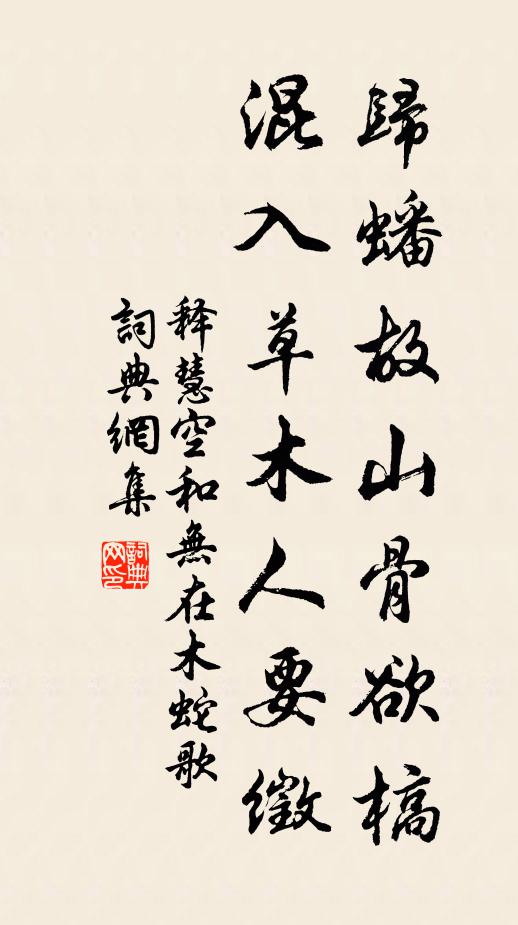 歸蟠故山骨欲槁
混入草木人要徵
释慧空和無在木蛇歌
詞典網集
詞典網印